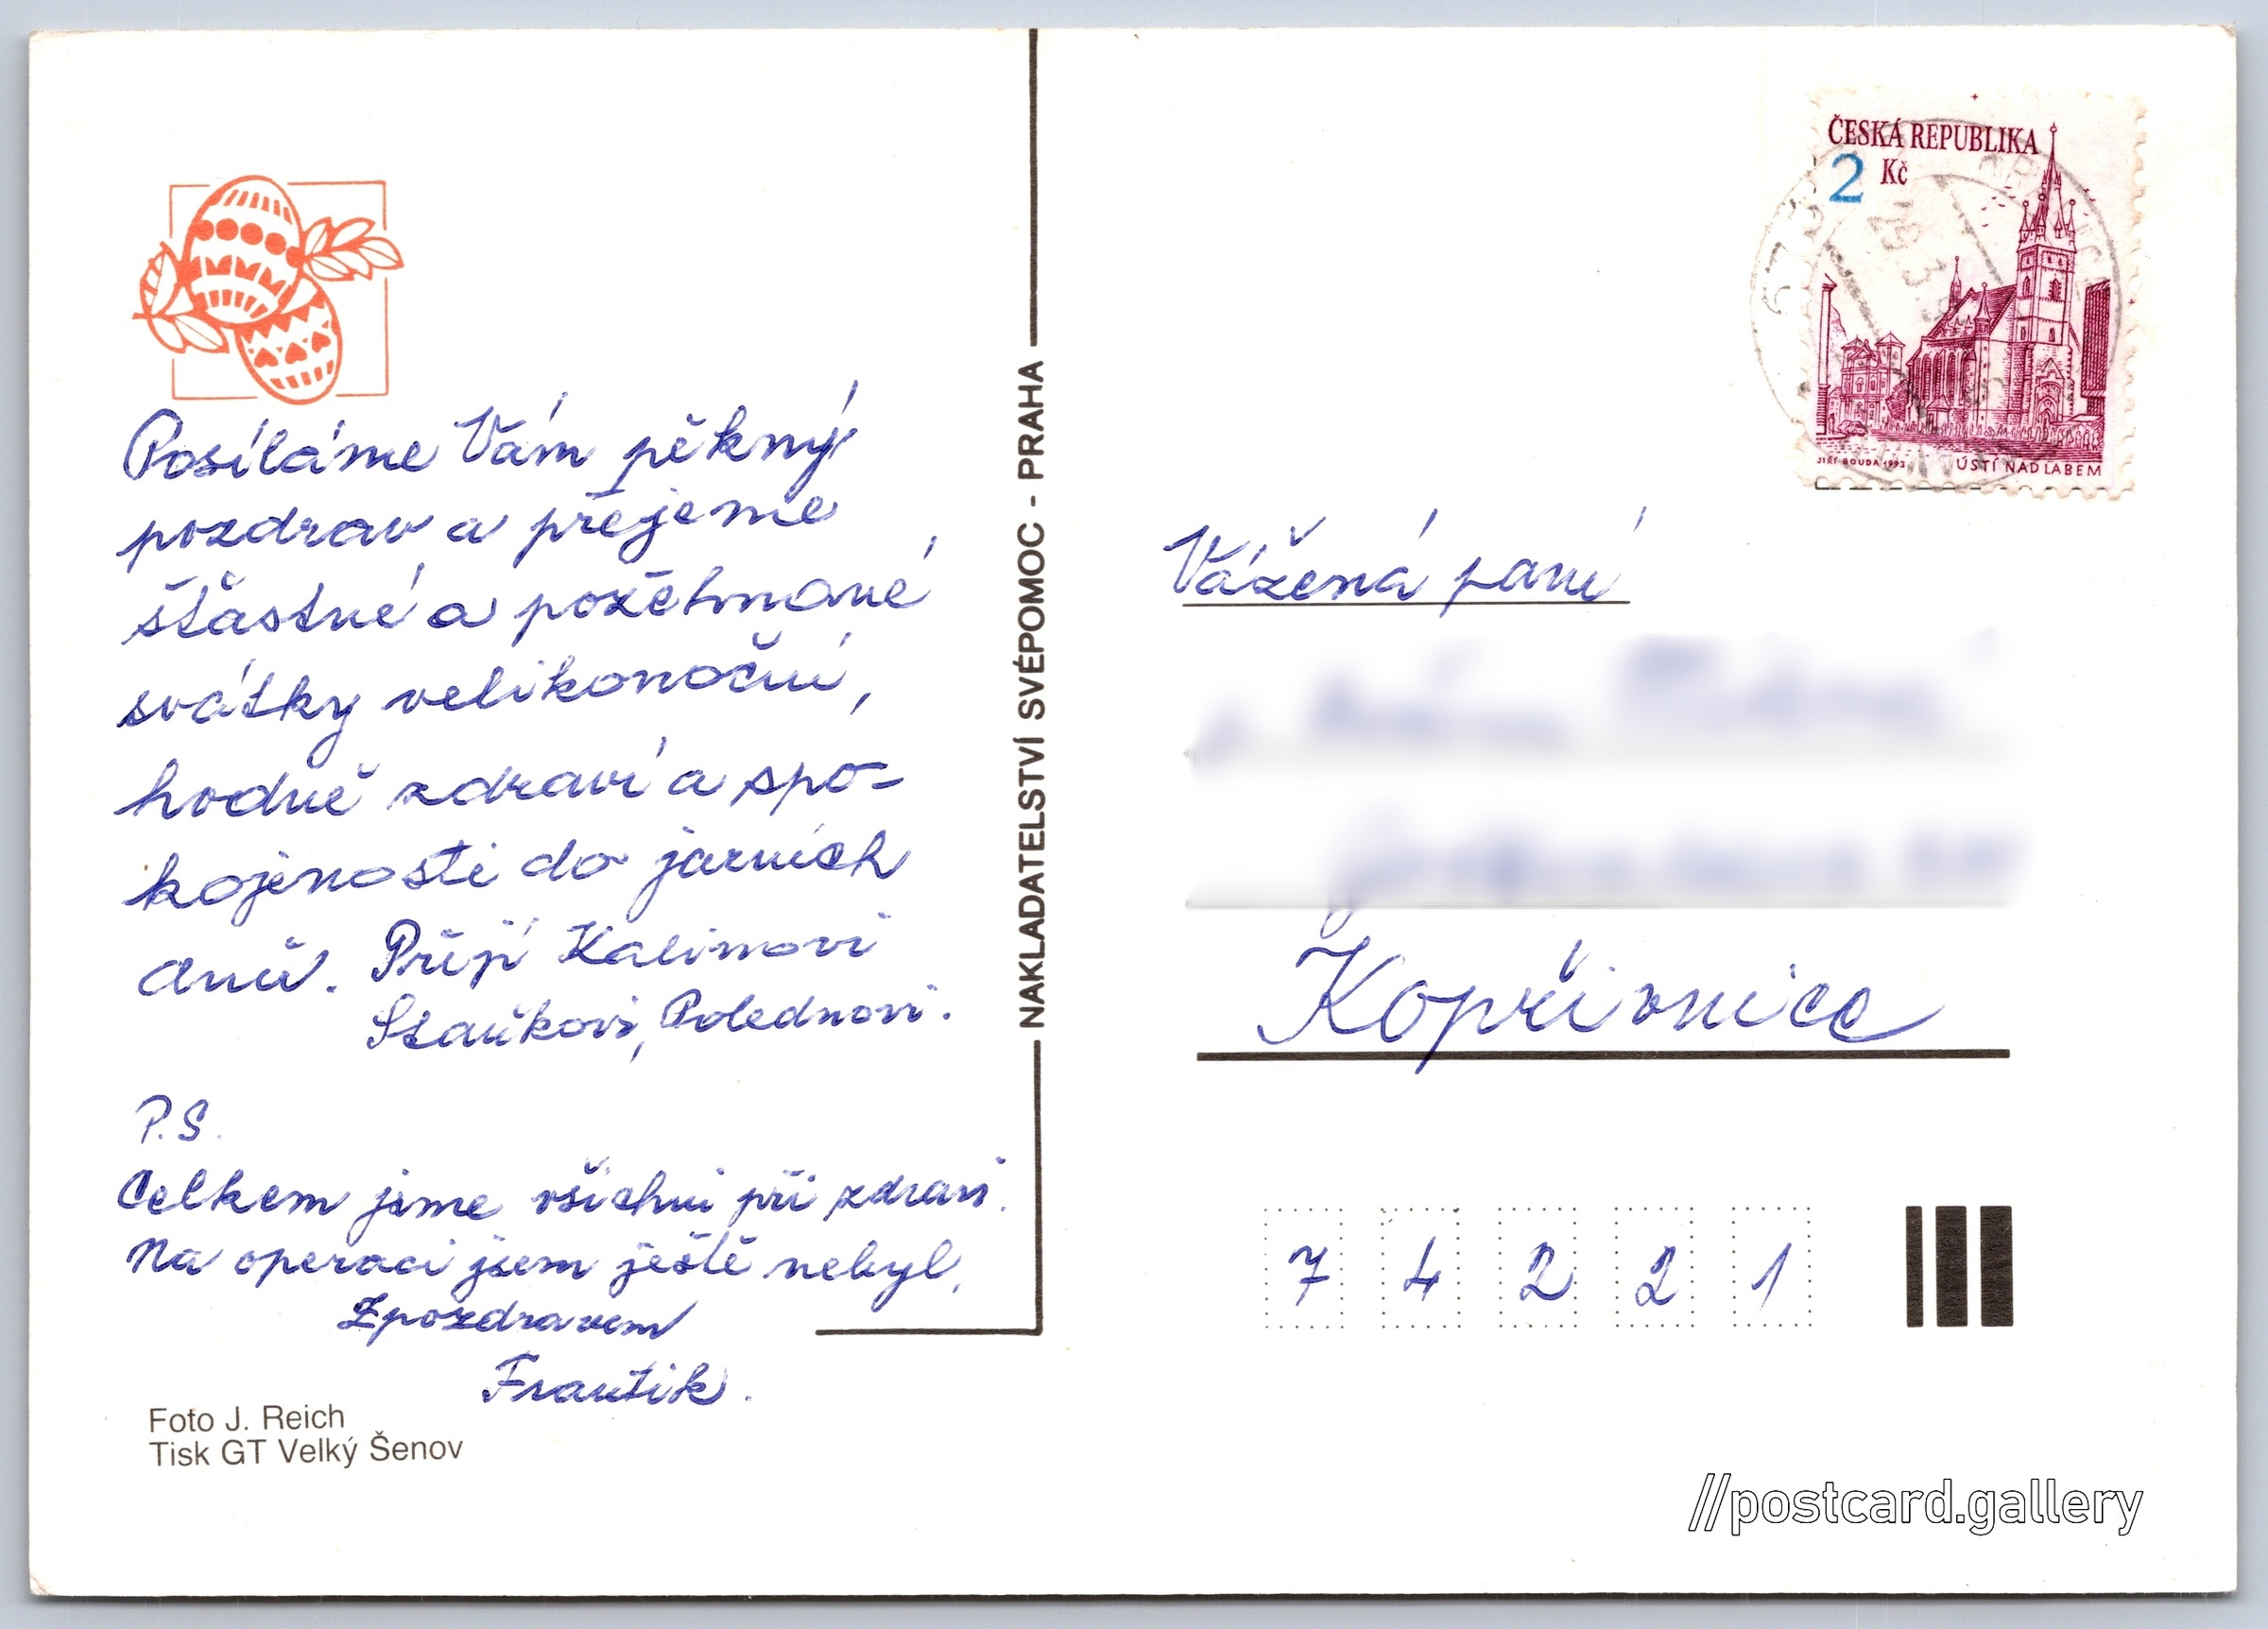 Posíláme Vám pěkný
pozdrav a přejeme
šťastné a požehnané
svátky velikonoční,
hodně zdraví a spo-
kojenosti do jarních
dnů. Přejí Kalinovi
Staňkovi, Polednovi.
P.S.
Celkem jsme všichni při zdraví.
Na operaci jsem ještě nebyl.
Zpozdravem
Frantik.
Foto J. Reich
Tisk GT Velký Šenov
NAKLADATELSTVÍ SVÉPOMOC - PRAHA
ČESKÁ REPUBLIKA
2 Kč
JIŘÍ BOUDA 1993 ÚSTÍ NAD LABEM
Vážená paní
Kopřivnice
7 4 2 2 1
//postcard.gallery